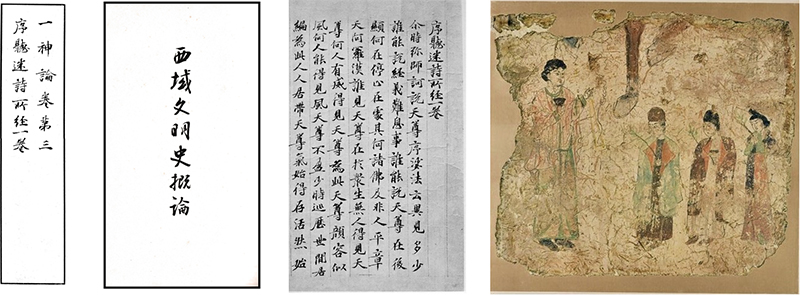 一神論卷第三
序聽迷詩所経一卷
西域文明史概論
序聽迷詩所經一卷
尒時弥師訶說天尊序娑法云異見多少
誰能說經義難息事誰能說天尊在後
顯何在停止在處其何諸佛及非人平章
天阿羅漢誰見天尊在於衆生無人得見天
尊何人有威得見天尊為此天尊顏容似
風何人能得見風天尊不盈少時巡歷世間居
編為此人人居帶天尊氣始得存活然始